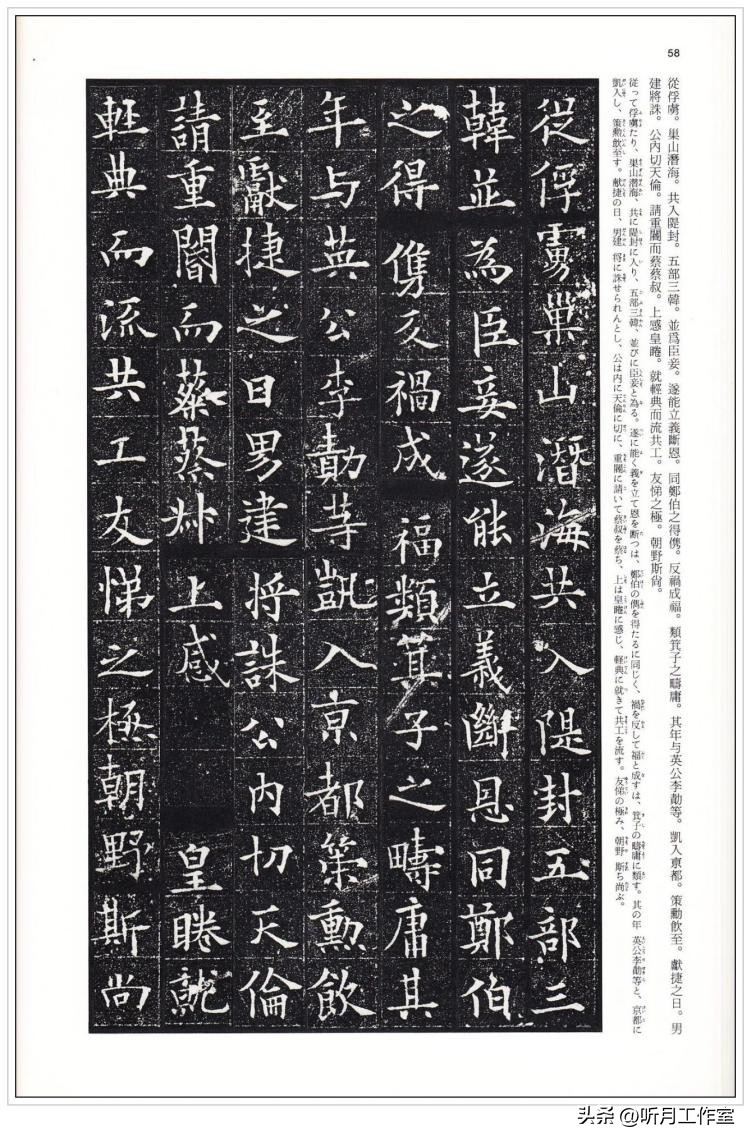 58
從俘虜。巣山潛海。共入隄封。五部三韓。並爲臣妾。遂能立義斷恩。同鄭伯之得儁。反禍成福。類箕子之疇庸。其年与英公李勣等。凱入京都。策勲飲至。獻捷之日。男
建將誅。公内切天倫。請重闥而蔡蔡叔。上感皇睠。就輕典而流共工。友悌之極。朝野斯尚。
従って俘虜たり、巣山潛海、共に隄封に入り、五部三韓、並びに臣妾と為る。遂に能く義を立て恩を断つは、鄭伯の儁を得たるに同じく、禍を反して福と成すは、箕子の疇庸に類す。其の年 英公李勣等と、京都に
凱入し、策勲飲至す。献捷の日、男建 将に誅せられんとし、公は内に天倫に切に、重闥に請いて蔡叔を蔡ち、上は皇睠に感じ、軽典に就きて共工を流す。友悌の極み、朝野 斯ち尚ぶ。
從俘虜巢山潛海共入隄封五部三
韓並為臣妾遂能立義斷恩同鄭伯
之得儁反禍成福類箕子之疇庸其
年与英公李勣等凱入京都策勳飲
至獻捷之日男建將誅公内切天倫
請重闥而蔡蔡叔上感皇睠就
輕典而流共工友悌之極朝野斯尚
头条 @听月工作室